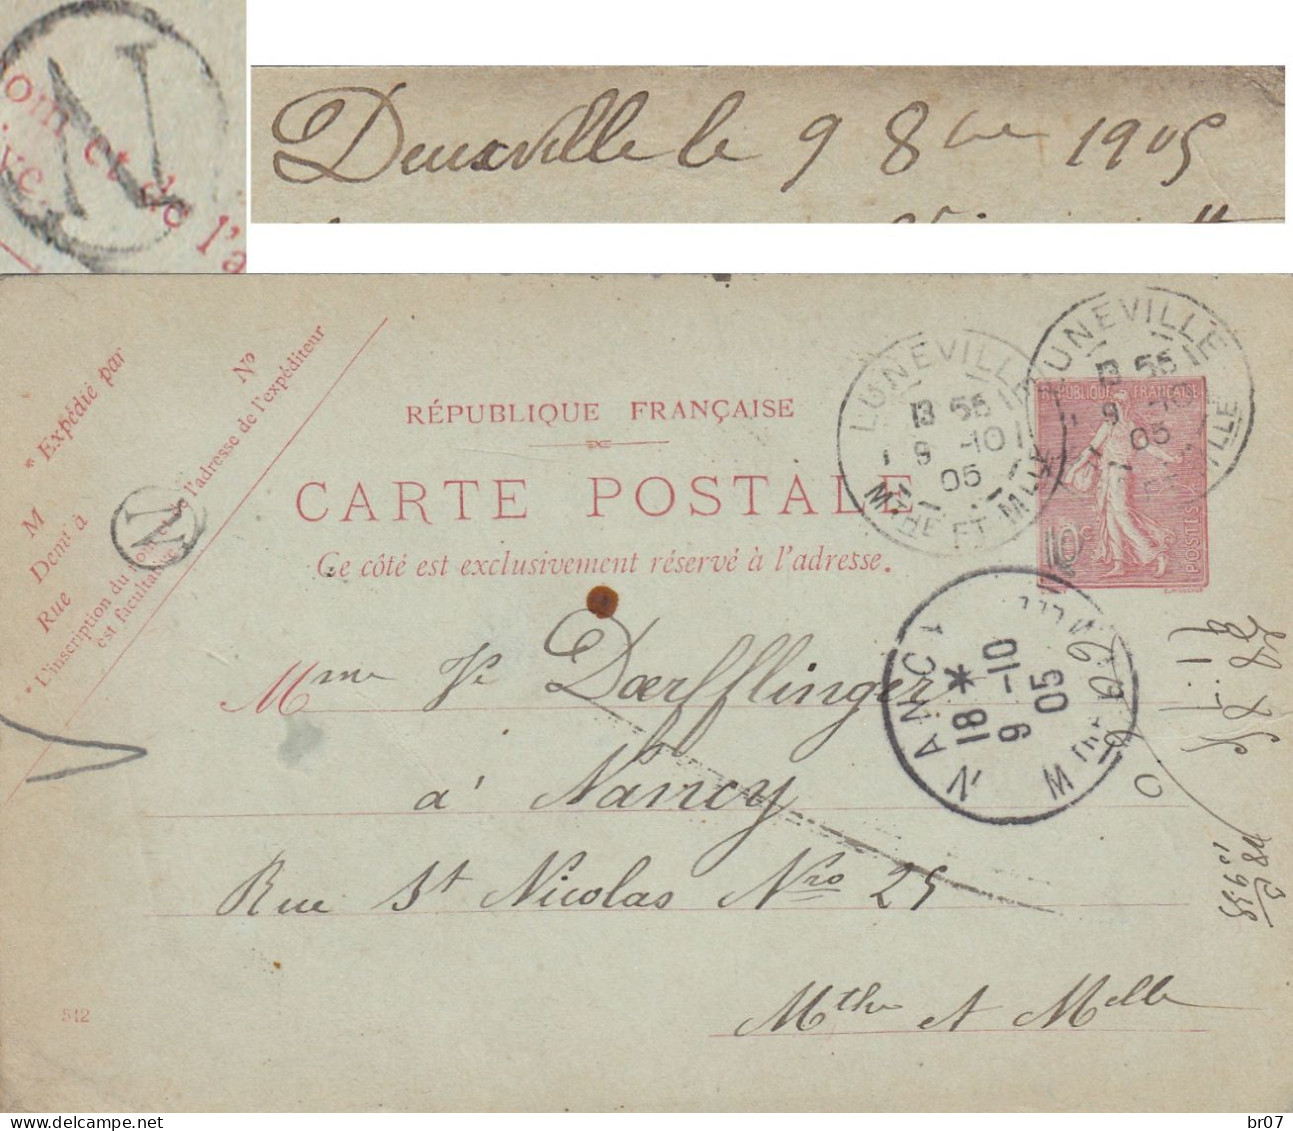 N
om et
ive
de l'a
Deuxville le 9 8bre 1905
* Expédié par
M
Demeurant à
Rue
Nº
* L'inscription du nom et de l'adresse de l'expéditeur
est facultative
N
RÉPUBLIQUE FRANÇAISE
CARTE POSTALE
Ce côté est exclusivement réservé à l'adresse.
LUNEVILLE
13 55
9 -10
05
MTHE ET MLLE
LUNEVILLE
13 55
9 -10
05
ET MLLE
REPUBLIQUE FRANÇAISE
10 c
POSTES
NANCY
18 *
9 -10
05
Mme Ve Doerfflinger
à Nancy
Rue St Nicolas Nro 25
Mthe et Mlle
512
br07